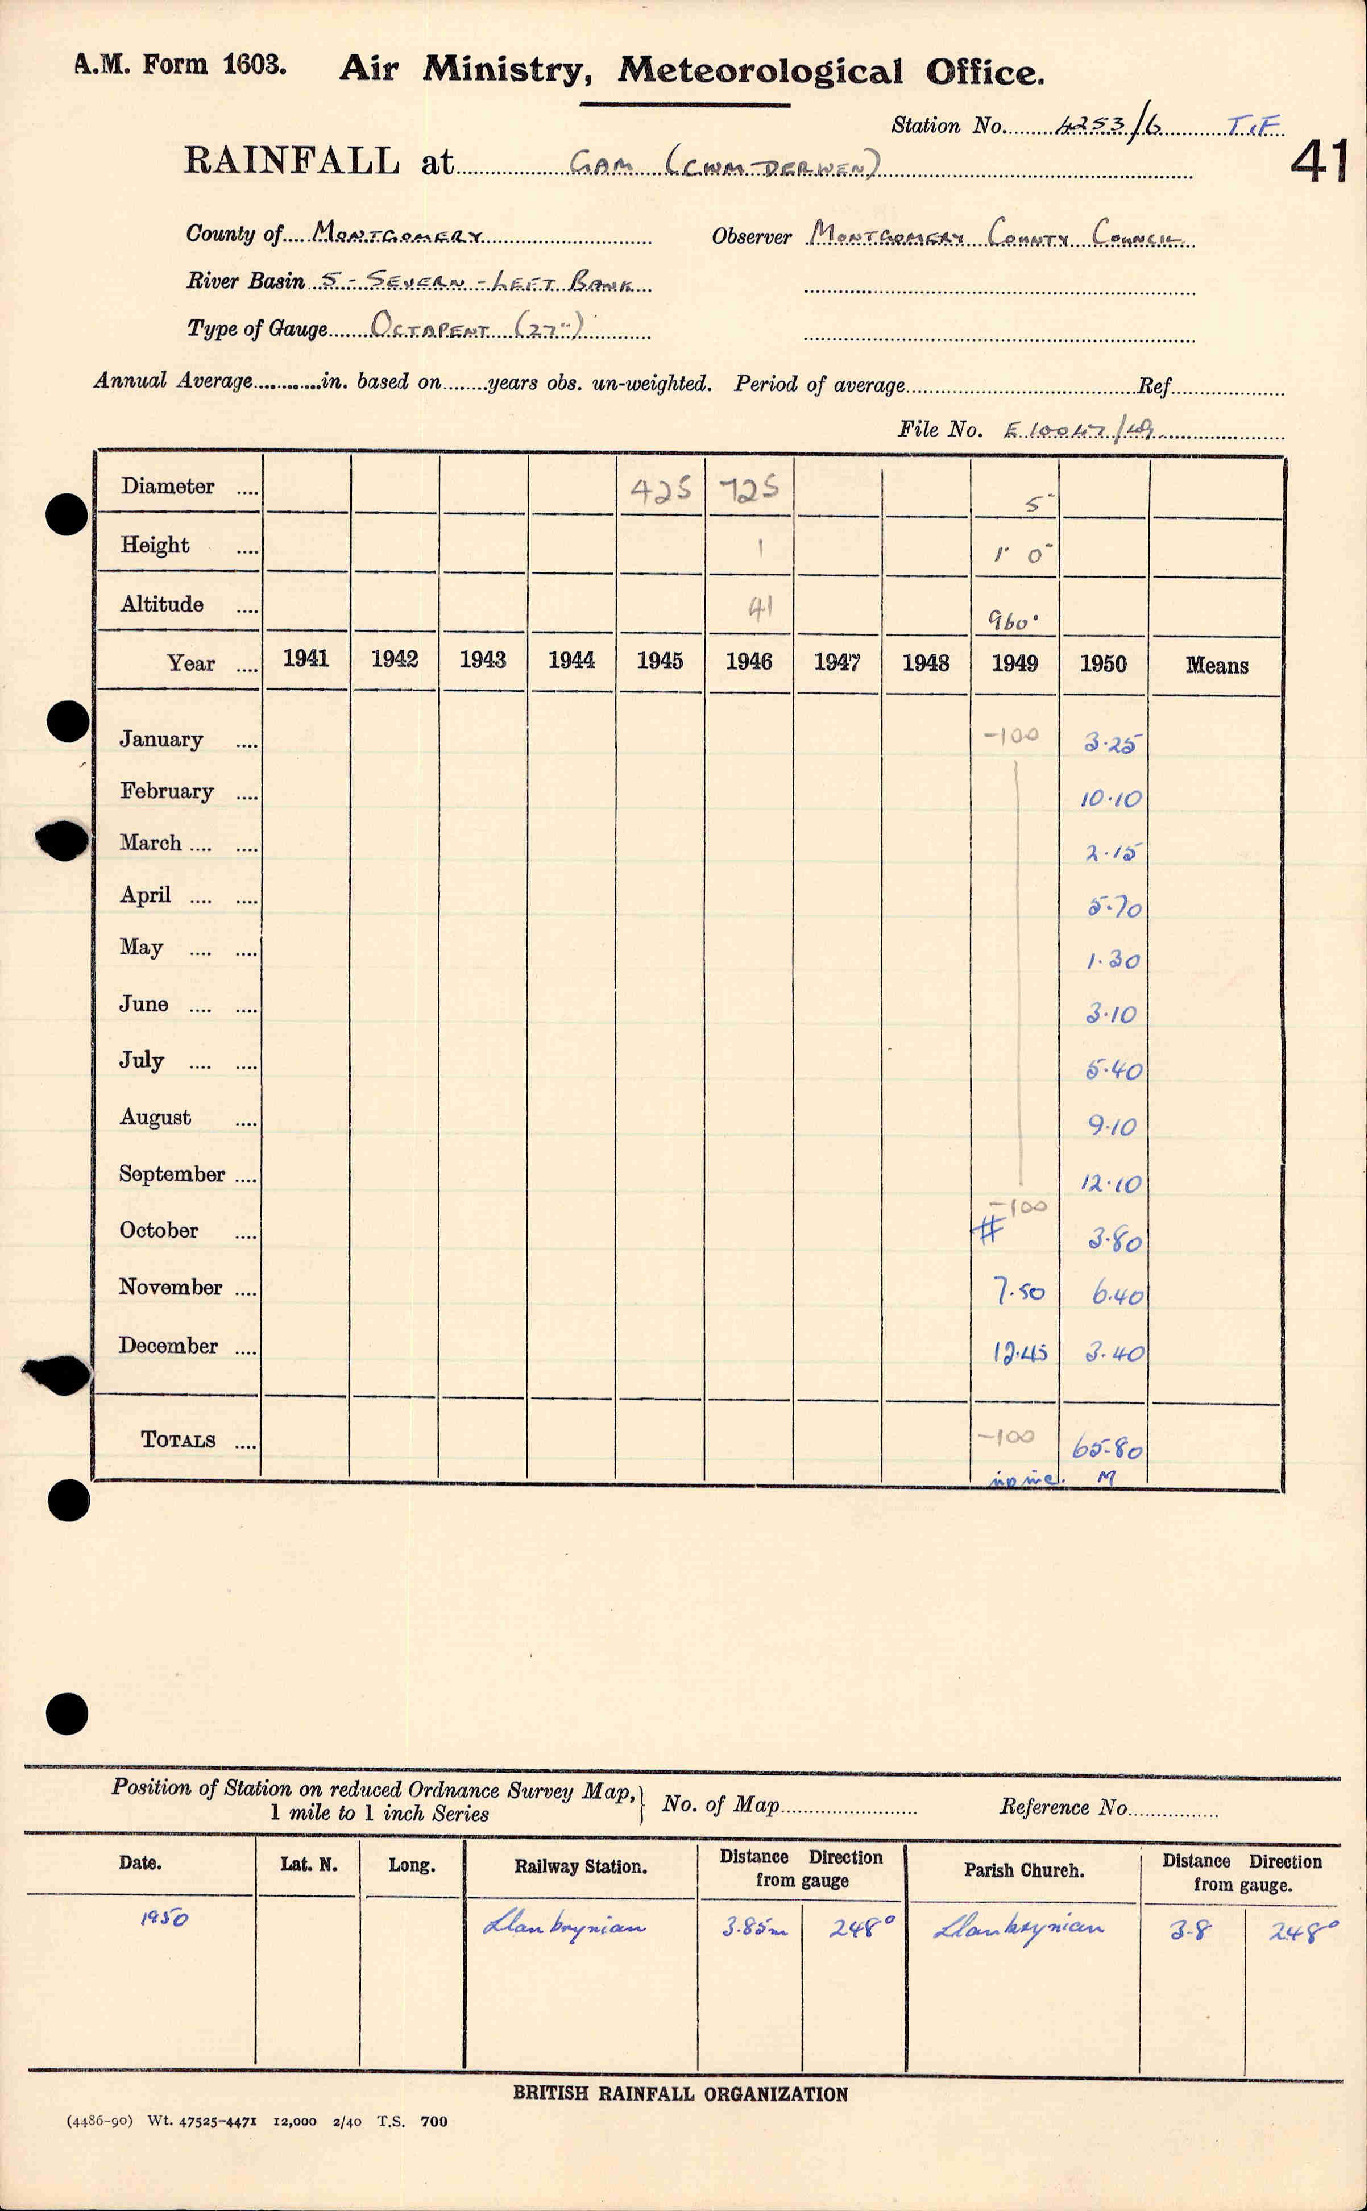 A.M. Form 1603. Air Ministry, Meteorological Office.
Station No. 4253/6 T.F
41
RAINFALL at GAM (CWM-DERWEN)
County of MONTGOMERY Observer MONTGOMERY COUNTY COUNCIL
River Basin 5 - SEVERN - LEFT BANK
Type of Gauge OCTAPENT (27")
Annual Average in. based on years obs. un-weighted. Period of average Ref.
File No. E 10047/49
Diameter 425 725 5"
Height 1 1' 0"
Altitude 41 960'
Year 1941 1942 1943 1944 1945 1946 1947 1948 1949 1950 Means
January -100 3.25
February 10.10
March 2.15
April 5.70
May 1.30
June 3.10
July 5.40
August 9.10
September 12.10
-100
October # 3.80
November 7.50 6.40
December 12.45 3.40
TOTALS -100 65.80
M
Position of Station on reduced Ordnance Survey Map, } No. of Map Reference No.
1 mile to 1 inch Series
Date. Lat. N. Long. Railway Station. Distance Direction from gauge Parish Church. Distance Direction from gauge.
1950 Llanbrynian 3.85m 248° Llanbrynian 3.8 248°
BRITISH RAINFALL ORGANIZATION
(4486-90) Wt. 47525-4471 12,000 2/40 T.S. 700